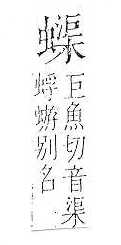 蟝
巨魚切音渠
蜉蝣別名